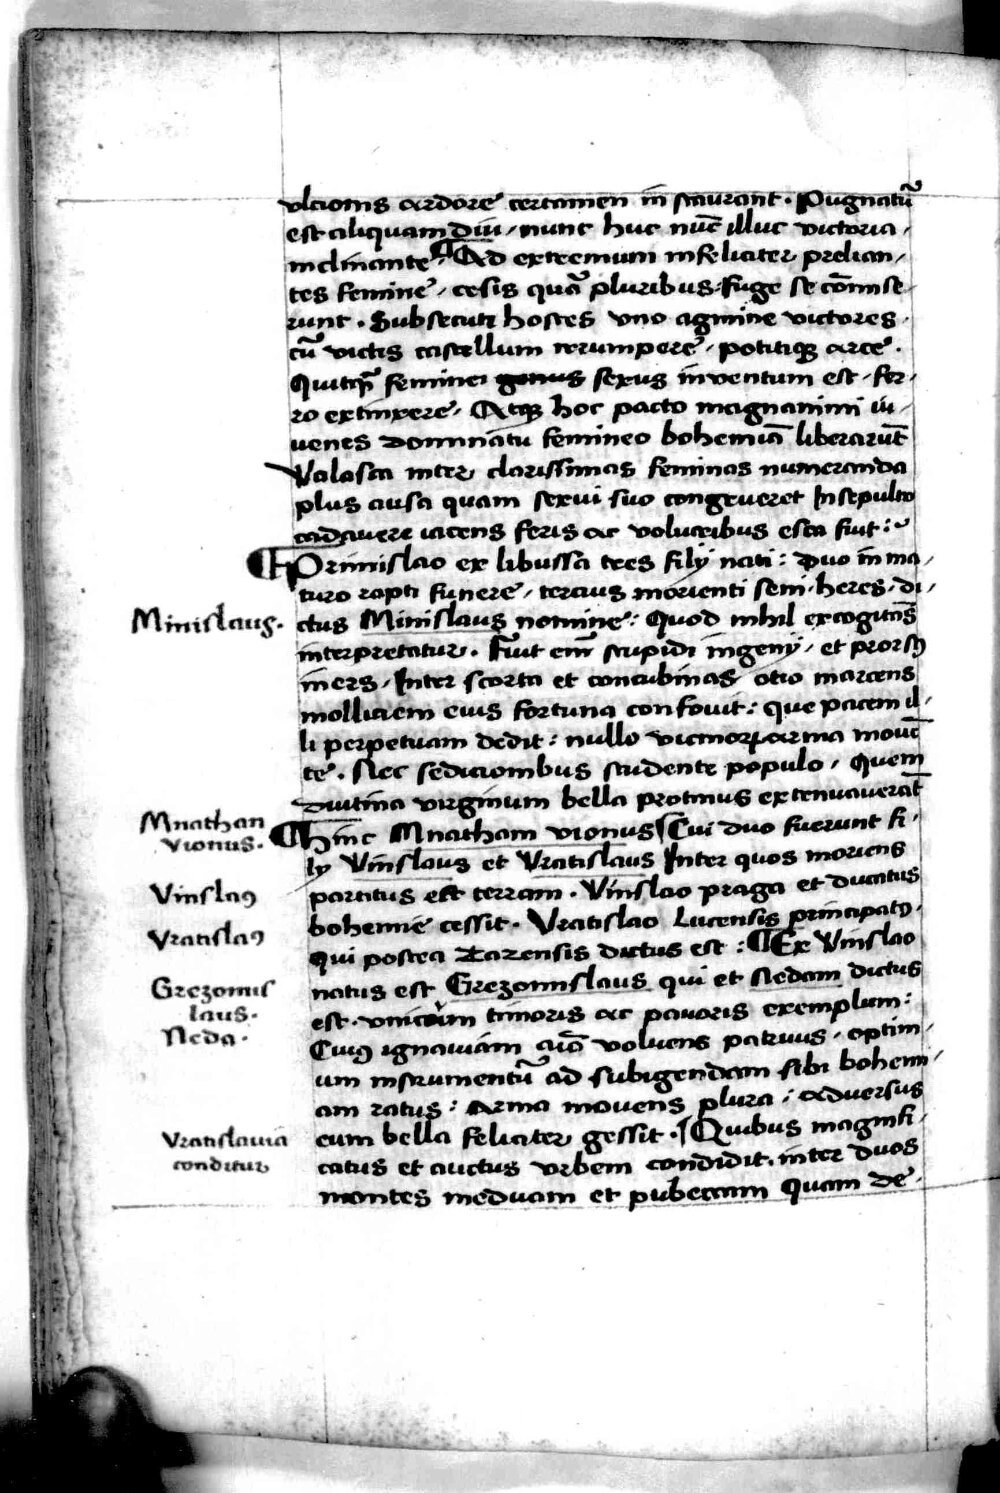 vlcionis ardore certamen in staurant. Pugnatū
est aliquam diu, nunc huc nūc illuc victoria,
inclinante, ¶ Ad extremum infeliciter prelian,
tes femine, cesis quā pluribus, fuge se cōmise,
runt. Subsecuti hostes vno agmine victores,
cū victis castellum irrumpere, potitiqꝫ arce.
Quitqꝫ feminei genus sexus inventum est, fer,
ro extinxere, Atqꝫ hoc pacto magnanimi iu,
uenes domnnatu femineo bohemiā liberarūt
Valasca inter clarissimas feminas numeranda
plus ausa quam sexui suo congrueret Insepulto
cadavere iacens feris ac volucribus esca fiut:
¶ Primislao ex libussa tres filij nati: Duo in ma,
turo rapti funere, tercius morienti seni, heres, di,
Minislaus.
ctus Minislaus nomine: Quod nihil excogitās
interpretatur. Fuit eni stupidi ingenij, et prorsꝰ
iners, Inter scorta et concubinas otio marcens
molliciem eius fortuna confouit: que pacem il,
li perpetuam dedit: nullo vicinorꝝ arma mouē
te. Nec sedicionibus studente populo, Quem
diutina virginum bella protinus extenuaverāt
Mnathan
vionus.
¶ Hinc Mnatham vionus Cui duo fuerunt fi,
lij Vinslaus et Vratislaus Inter quos moriens
Vinslaꝰ
partitus est terram. Vinslao praga et ducatus
bohemie cessit. Vratislao Lucensis principatꝰ,
Vratislaꝰ
Qui postea Zazensis dictus est: ¶ Ex Vinslao
Grezomis
laus.
natus est Grezomislaus qui et Nedam dictus
est. vnicum timoris ac pavoris exemplum:
Neda.
Cuiꝰ ignaviam aīo voluens patruus, optim,
um instrumentū ad subigendam sibi bohemi,
am ratus: arma movens plura, adversus
Vratislavia
conditur
eum bella feliciter gessit. Quibus magnifi,
catus et auctus vrbem condidit, inter duos
montes meduam et pubecam Quam de,